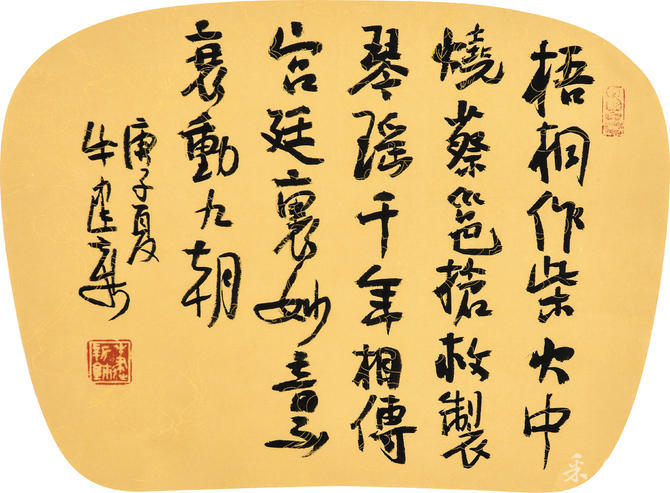 梧桐作柴火中
燒蔡邕搶救製
琴瑶千年相傳
宫廷裏妙意
動九朝
庚子夏
牛建